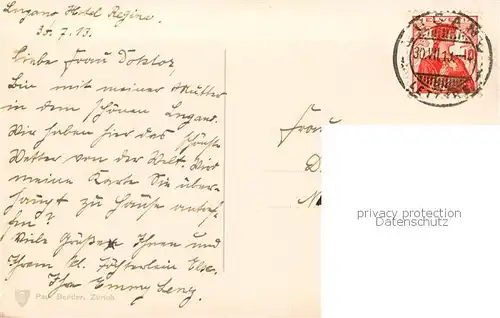 Lugano Hotel Regina.
30.7.13.
Liebe Frau Doktor,
Bin mit meiner Mutter
in dem schönen Lugano.
Wir haben hier das schönste
Wetter von der Welt. Wird
meine Karte Sie über-
haupt zu Hause antref-
fen?
Viele Grüße Ihnen und
Ihrem kl. Töchterlein Else.
Ihre Emmy Lenz.
Frau
D
privacy protection
Datenschutz
HELVETIA
10
30.VII.13
Paul Bender, Zürich.